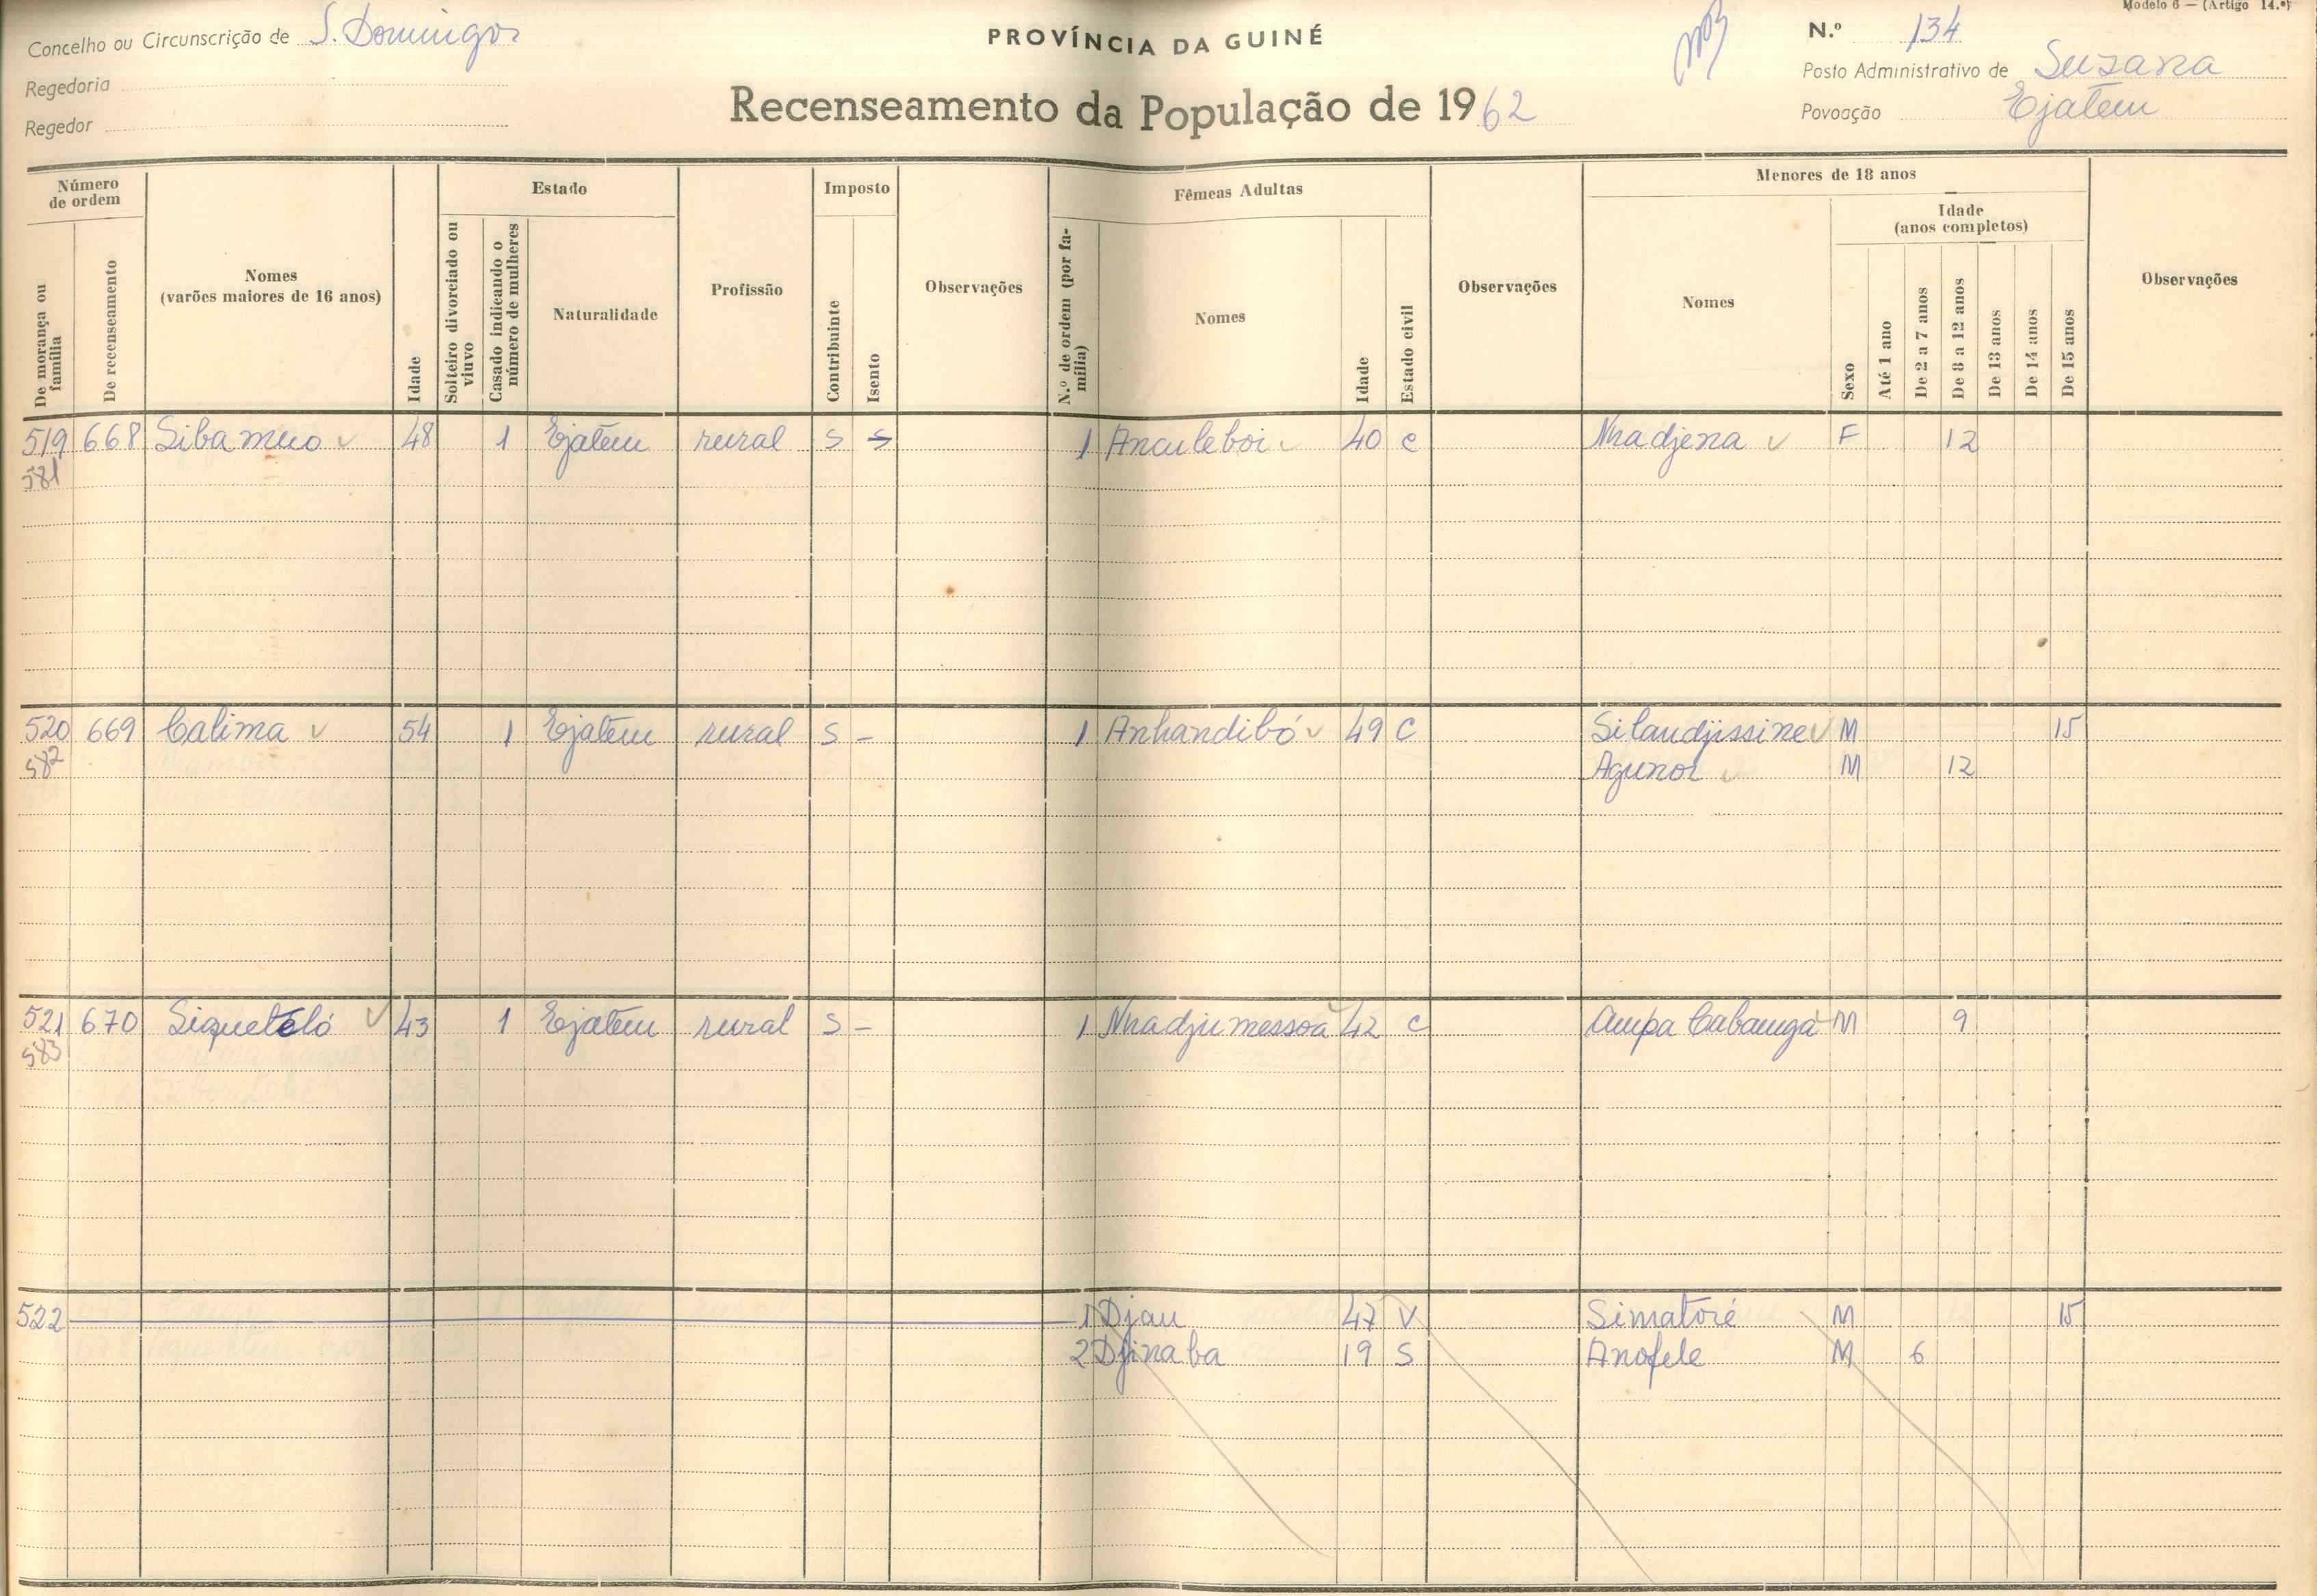 Modelo 6 — (Artigo 14.º)
Concelho ou Circunscrição de S. Domingos
PROVÍNCIA DA GUINÉ
N.º 134
Regedoria
Posto Administrativo de Suzana
Regedor
Recenseamento da População de 1962
Povoação Ejatem
Número de ordem
De morança ou família
De recenseamento
Nomes (varões maiores de 16 anos)
Idade
Estado
Solteiro divorciado ou viuvo
Casado indicando o número de mulheres
Naturalidade
Profissão
Imposto
Contribuinte
Isento
Observações
Fêmeas Adultas
N.º de ordem (por família)
Nomes
Idade
Estado civil
Observações
Menores de 18 anos
Nomes
Sexo
Idade (anos completos)
Até 1 ano
De 2 a 7 anos
De 8 a 12 anos
De 13 anos
De 14 anos
De 15 anos
Observações
519 668 Sibamuo 48 1 Ejatem rural S S 1 Anculeboi 40 c Nhadjena F 12
581
520 669 Calima 54 1 Ejatem rural S - 1 Anhandibó 49 C Silaudjissine M 15
582 Agunor M 12
521 670 Siquetéló 43 1 Ejatem rural S - 1 Nhadjumessoa 42 c Ampa Cabaugá M 9
583
522 1 Djau 47 V Simatoré M 15
2 Djinaba 19 S Anofele M 6